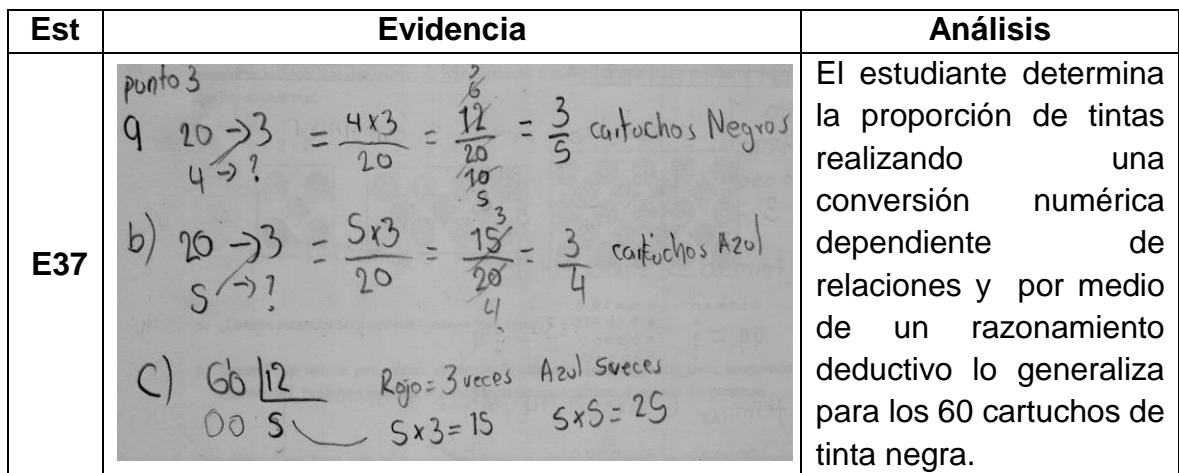 Est Evidencia Análisis
E37
punto 3
a 20 → 3 = 4x3/20 = 12/20 = 3/5 cartuchos Negros
4 → ?
6
10
5
b) 20 → 3 = 5x3/20 = 15/20 = 3/4 cartuchos Azul
5 → ?
3
4
c) 60 | 12 Rojo = 3 veces Azul 5 veces
00 5 5x3 = 15 5x5 = 25
El estudiante determina
la proporción de tintas
realizando una
conversión numérica
dependiente de
relaciones y por medio
de un razonamiento
deductivo lo generaliza
para los 60 cartuchos de
tinta negra.